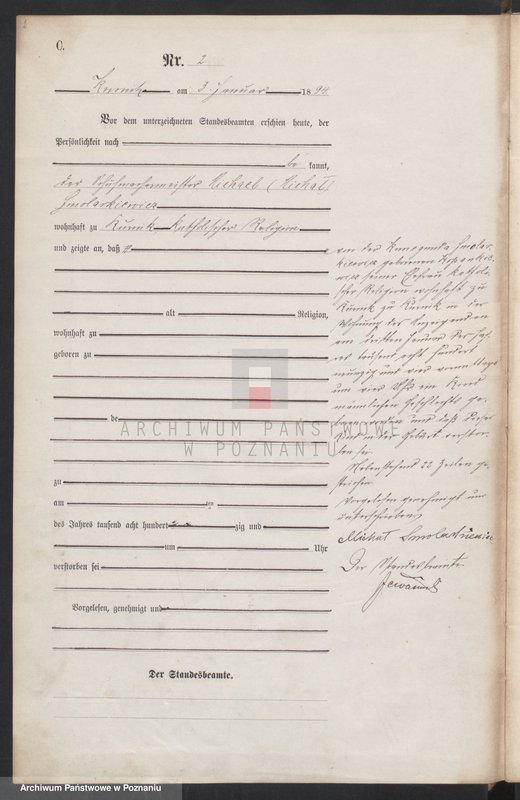 C.
Nr. 2
Kurnik am 3 Januar 1894
Vor dem unterzeichneten Standesbeamten erschien heute, der
Persönlichkeit nach
be kannt,
der Schuhmachermeister Michael (Michał)
Smolarkiewicz
wohnhaft zu Kurnik katholischer Religion
und zeigte an, daß
von der Kunegunda Smolar-
kiewicz geborenen
seiner Ehefrau katholi-
scher Religion wohnhaft zu
Kurnik zu Kurnik in der
Wohnung des Anzeigenden
am dritten Januar des Jah-
res tausend acht hundert
neunzig und vier
um vier Uhr ein Kind
männlichen Geschlechts ge-
boren worden und daß dieses
Kind in der Geburt verstor-
ben sei
Nebenstehend 22 Zeilen ge-
strichen.
Vorgelesen genehmigt und
unterschrieben
Michał Smolarkiewicz
Der Standesbeamte
alt Religion,
wohnhaft zu
geboren zu
de
zu
am
des Jahres tausend acht hundert zig und
um Uhr
verstorben sei
Vorgelesen, genehmigt und
Der Standesbeamte.
ARCHIWUM PAŃSTWOWE
W POZNANIU
Archiwum Państwowe w Poznaniu